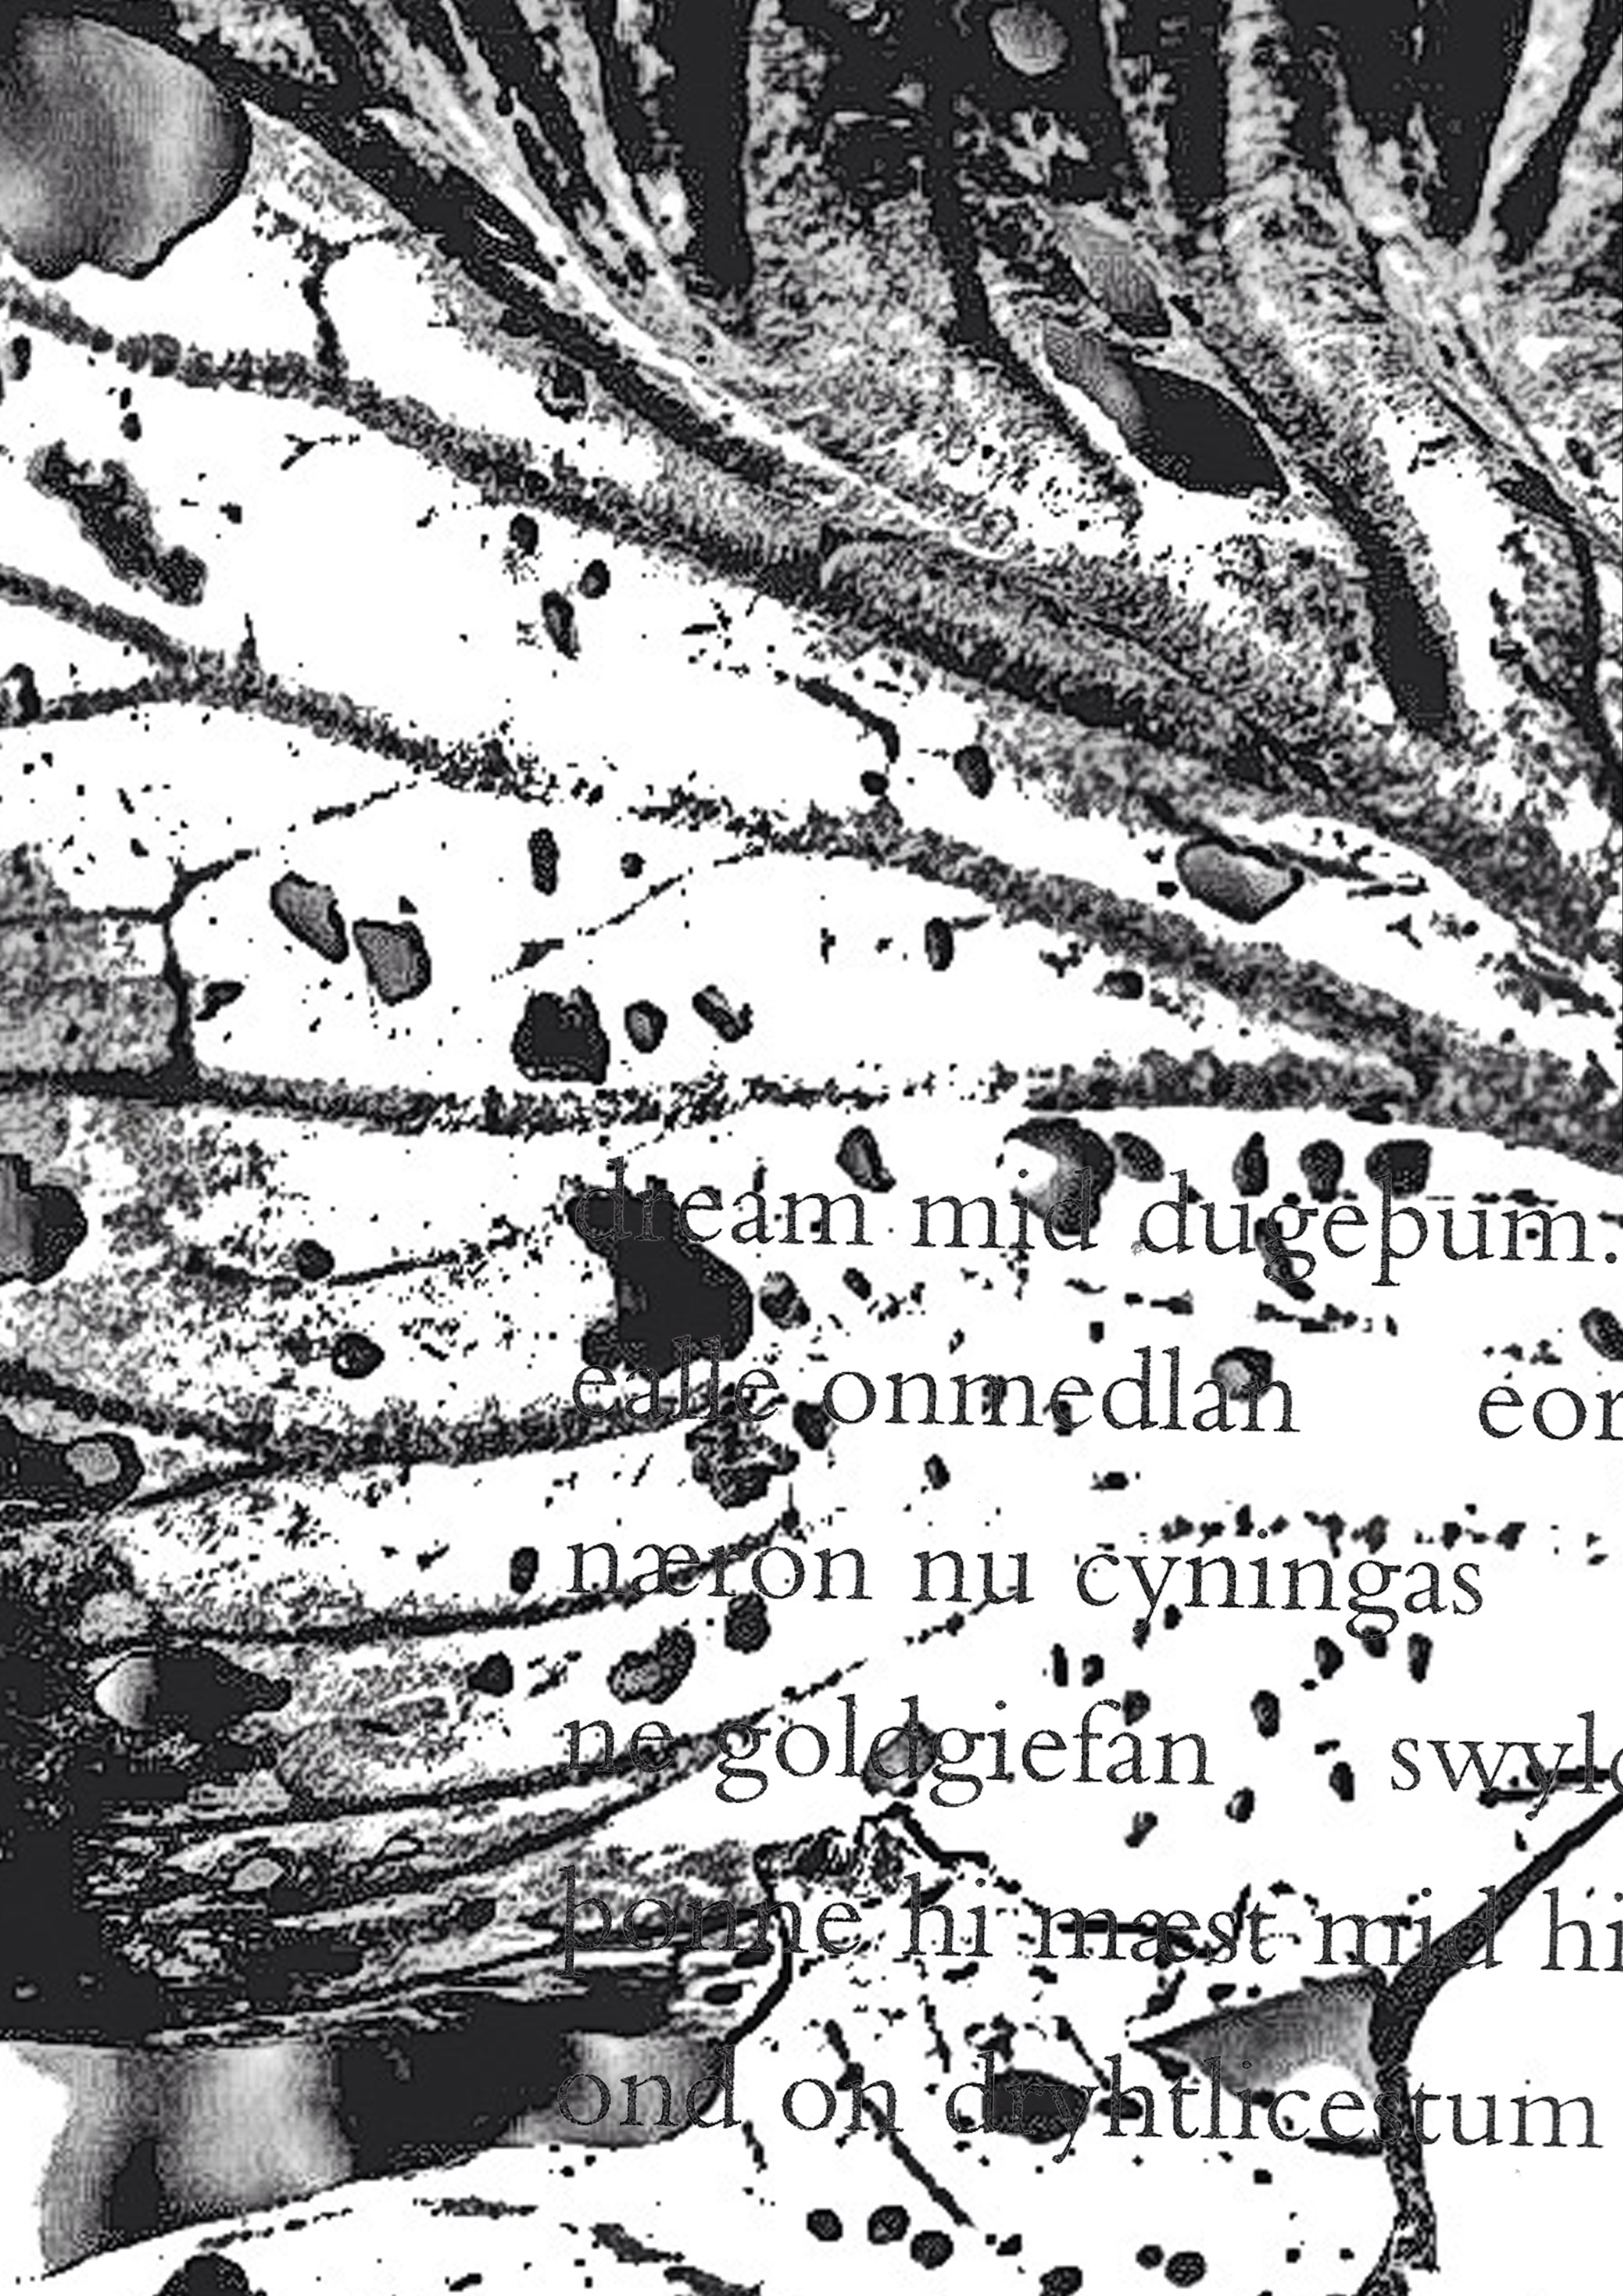 dream mid dugeþum.
ealle onmedlan eor
næron nu cyningas
ne goldgiefan swylc
þonne hi mæst mid hi
ond on dryhtlicestum